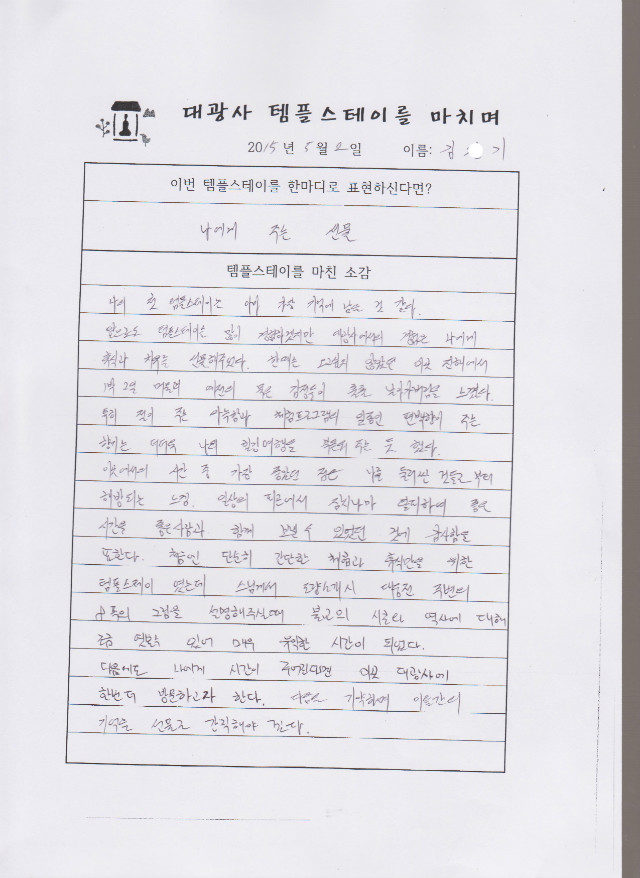 대광사 템플스테이를 마치며
2015년 5월 2일 이름: 김 기
이번 템플스테이를 한마디로 표현하신다면?
나에게 주는 선물
템플스테이를 마친 소감
나의 첫 템플스테이는 아마 추상 기억에 남을 것 같다.
앞으로도 템플스테이는 많이 경험하겠지만 에서의 경험은 나에게
휴식과 을 선물해주었다. 한에는 이곳 잔에서
1박 2일 머물며 예전의 묵은 감정들이 훌훌 을 느꼈다.
특히 절이 주는 과 체험프로그램의 일종인 편백향이 주는
향기는 더더욱 나의 을 북돋워 주는 듯 했다.
이곳에서의 시간 중 가장 좋았던 점은 나를 둘러싼 것들로부터
해방되는 느낌. 일상의 피로에서 잠시나마 탈피하여 좋은
시간을 좋은사람과 함께 보낼 수 있었던 것에 감사함을
표한다. 처음엔 단순히 간단한 체험과 휴식만을 위한
템플스테이 였는데 스님께서 도량소개시 대웅전 주변의
8폭의 그림을 설명해주실때 불교의 시초와 역사에 대해
조금 엿볼수 있어 매우 유익한 시간이 되었다.
다음에도 나에게 시간이 주어진다면 이곳 대광사에
한번더 방문하고자 한다. 다음을 기약하며 이틀간의
기억을 선물로 간직해야 겠다.